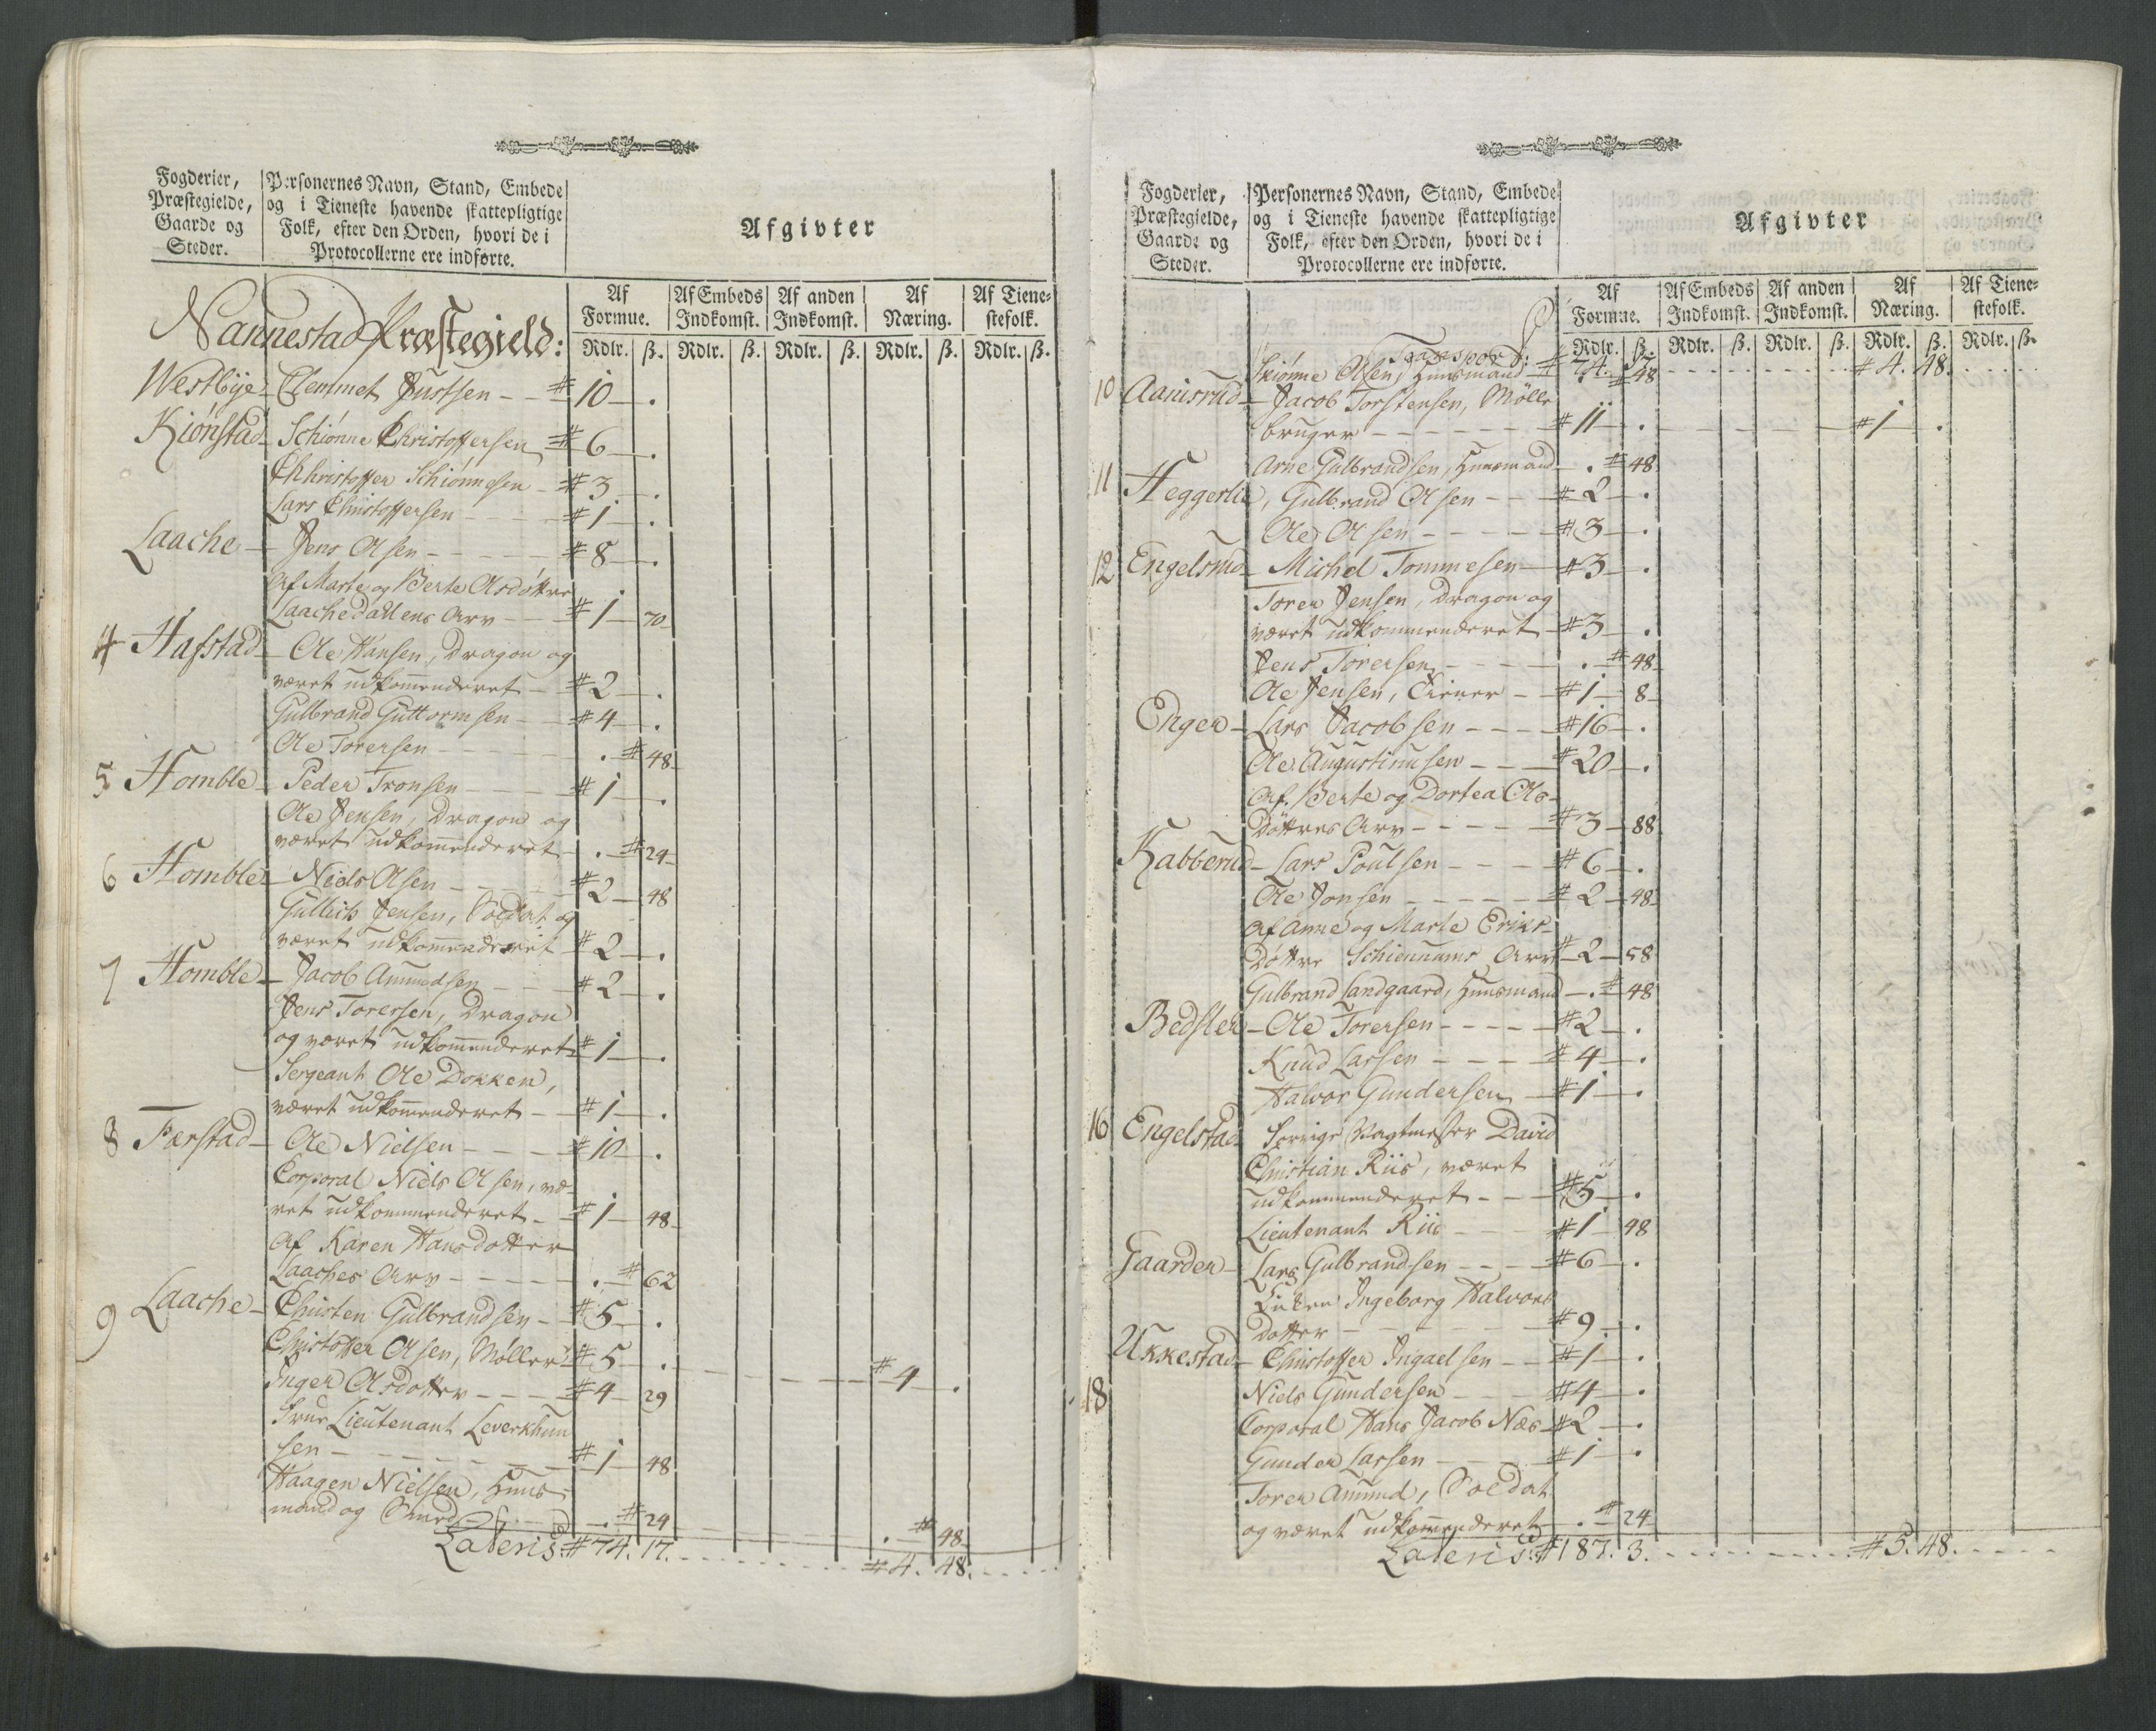 Fogderier,
Præstegielde,
Gaarde og
Steder.
Personernes Navn, Stand, Embede
og i Tieneste havende skattepligtige
Folk, efter den Orden, hvori de i
Protocollerne ere indførte.
Afgivter
Af Formue. Af Embeds Indkomst. Af anden Indkomst. Af Næring. Af Tienestefolk.
Rdlr. ß. Rdlr. ß. Rdlr. ß. Rdlr. ß. Rdlr. ß.
Nannestad Præstegield:
Westbye - Clemmet Justsen - - # 10 - .
Kiønstad - Schiønne Christoffersen # 6 - .
Chhristoffer Schiønnesen - # 3 - .
Lars Christoffersen - - - # 1 - .
Laache - Jens Olsen - - - - # 8 - .
af Marte og Berte Olsdøttre
Laachedallens Arv - - # 1 - 70
4 Hafstad - Ole Hansen, Dragon og
været udkommenderet - # 2 - .
Gulbrand Guttormsen - - # 4 - .
Ole Torersen - - - - . # 48
5 Homble - Peder Tronsen - - - # 1 - .
Ole Jensen, Dragon og
været udkommenderet - . # 24
6 Homble - Niels Olsen - - - # 2 - 48
Gullich Jensen, Soldat og
været udkommenderet # 2 - .
7 Homble - Jacob Amundsen - - - # 2 - .
Jens Torersen, Dragon
og været udkommenderet # 1 - .
Sergeant Ole Dokken,
været udkommenderet - - # 1 - .
8 Færstad - Ole Nielsen - - - - # 10 - .
Corporal Niels Olsen, væ-
ret udkommenderet - # 1 - 48
Af Karen Hansdatter
Laaches Arv - - - - . # 62
9 Laache - Christen Gulbrandsen - # 5 - .
Christoffer Olsen, Møller # 5 - . - - - # 4 - .
Inger Olsdatter - - - # 4 - 29
Frue Lieutenant Leverkhun
sen - - - - - # 1 - 48
Haagen Nielsen, Huus-
mand og Smed - - . # 24 - - - . # 48
Lateris: # 74. 17. - - - # 4. 48. - - -
Fogderier,
Præstegielde,
Gaarde og
Steder.
Personernes Navn, Stand, Embede
og i Tieneste havende skattepligtige
Folk, efter den Orden, hvori de i
Protocollerne ere indførte.
Afgivter
Af Formue. Af Embeds Indkomst. Af anden Indkomst. Af Næring. Af Tienestefolk.
Rdlr. ß. Rdlr. ß. Rdlr. ß. Rdlr. ß. Rdlr. ß.
Transport: # 74. 17. - - - # 4. 48. - - -
Skiønne Olsen, Huusmand - # 48
10 Aamisrud - Jacob Torstensen, Mølle
bruger - - - - - # 11 - . - - - # 1 - .
Arne Gulbrandsen, Huusmand . # 48
11 Heggerlie, Gulbrand Olsen - - # 2 - .
Ole Olsen - - - - # 3 - .
12 Engelsrud - Michel Tommesen - # 3 - .
Torer Jensen, Dragon og
været udkommenderet - # 3 - .
Jens Torersen - - - . # 48
Ole Jensen, Tiener - # 1 - 8
Enger - Lars Jacobsen - - - # 16 - .
Ole Augustinusen - - # 20 - .
Af Berte og Dortea Ols-
døttres Arv - - - - # 3 - 88
Kabberud - Lars Poulsen - - - # 6 - .
Ole Jonsen - - - - # 2 - 48
af Anne og Marte Eriks-
døttre Schiennums Arv # 2 - 58
Gulbrand Landgaard, Huusmand - . # 48
Bedsler - Ole Torersen - - - - # 2 - .
Knud Larsen - - - # 4 - .
Halvor Gundersen - # 1 - .
16 Engelstad - Vagtmester David
Christian Riis, været
udkommenderet - - # 5 - .
Lieutenant Riis - - # 1 - 48
Gaarder - Lars Gulbrandsen - - - # 6 - .
Enken Ingeborg Halvors
datter - - - - # 9 - .
Ukkestad - Christoffer Ingaelsen - - # 1 - .
18 Niels Gundersen - - - # 4 - .
Corporal Hans Jacob Næs # 2 - .
Gunder Larsen - - - # 1 - .
Torer Amund, Soldat
og været udkommenderet - . # 24
Lateris: # 187. 3. - - - # 5. 48. - - -